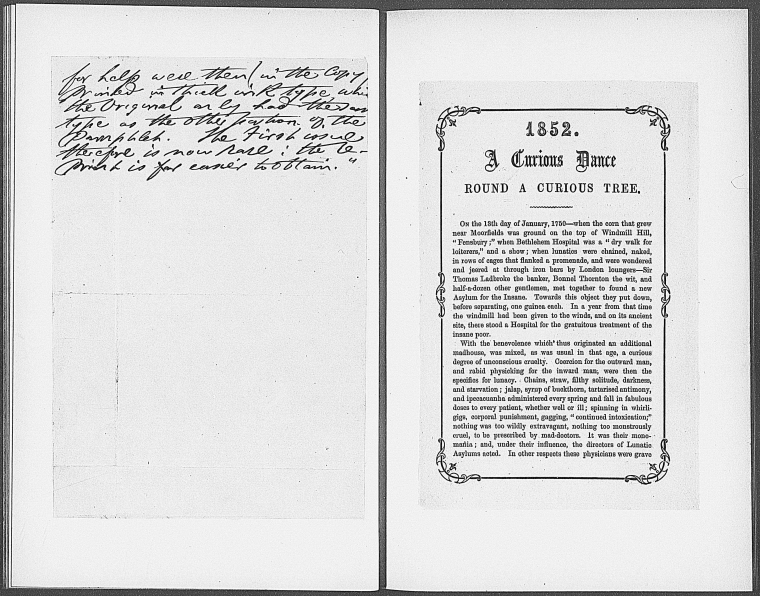 for help were then (in the Copy)
printed in thick ink type whi
the Original only had the same
type as the other portion of the
Pamphlet. The First issue
therefore is now rare: the re-
print is far easier to obtain."
1852.
A Curious Dance
ROUND A CURIOUS TREE.
ON the 13th day of January, 1750—when the corn that grew
near Moorfields was ground on the top of Windmill Hill,
"Fensbury;" when Bethlehem Hospital was a "dry walk for
loiterers," and a show; when lunatics were chained, naked,
in rows of cages that flanked a promenade, and were wondered
and jeered at through iron bars by London loungers—Sir
Thomas Ladbroke the banker, Bonnel Thornton the wit, and
half-a-dozen other gentlemen, met together to found a new
Asylum for the Insane. Towards this object they put down,
before separating, one guinea each. In a year from that time
the windmill had been given to the winds, and on its ancient
site, there stood a Hospital for the gratuitous treatment of the
insane poor.
With the benevolence which thus originated an additional
madhouse, was mixed, as was usual in that age, a curious
degree of unconscious cruelty. Coercion for the outward man,
and rabid physicking for the inward man, were then the
specifics for lunacy. Chains, straw, filthy solitude, darkness,
and starvation; jalap, syrup of buckthorn, tartarised antimony,
and ipecacuanha administered every spring and fall in fabulous
doses to every patient, whether well or ill; spinning in whirli-
gigs, corporal punishment, gagging, "continued intoxication;"
nothing was too wildly extravagant, nothing too monstrously
cruel, to be prescribed by mad-doctors. It was their mono-
mania; and, under their influence, the directors of Lunatic
Asylums acted. In other respects these physicians were grave